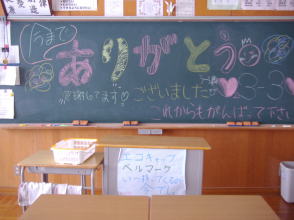 今まで
ありがとう
感謝してます
ございました
3-3
これからもがんばって下さい
エコキャップ
ベルマーク